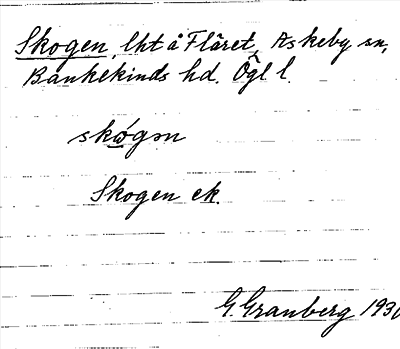 Skogen, lht å Flåret, Askeby sn,
Bankekinds hd. Ögl l.
skógən
Skogen ek.
G. Granberg 193